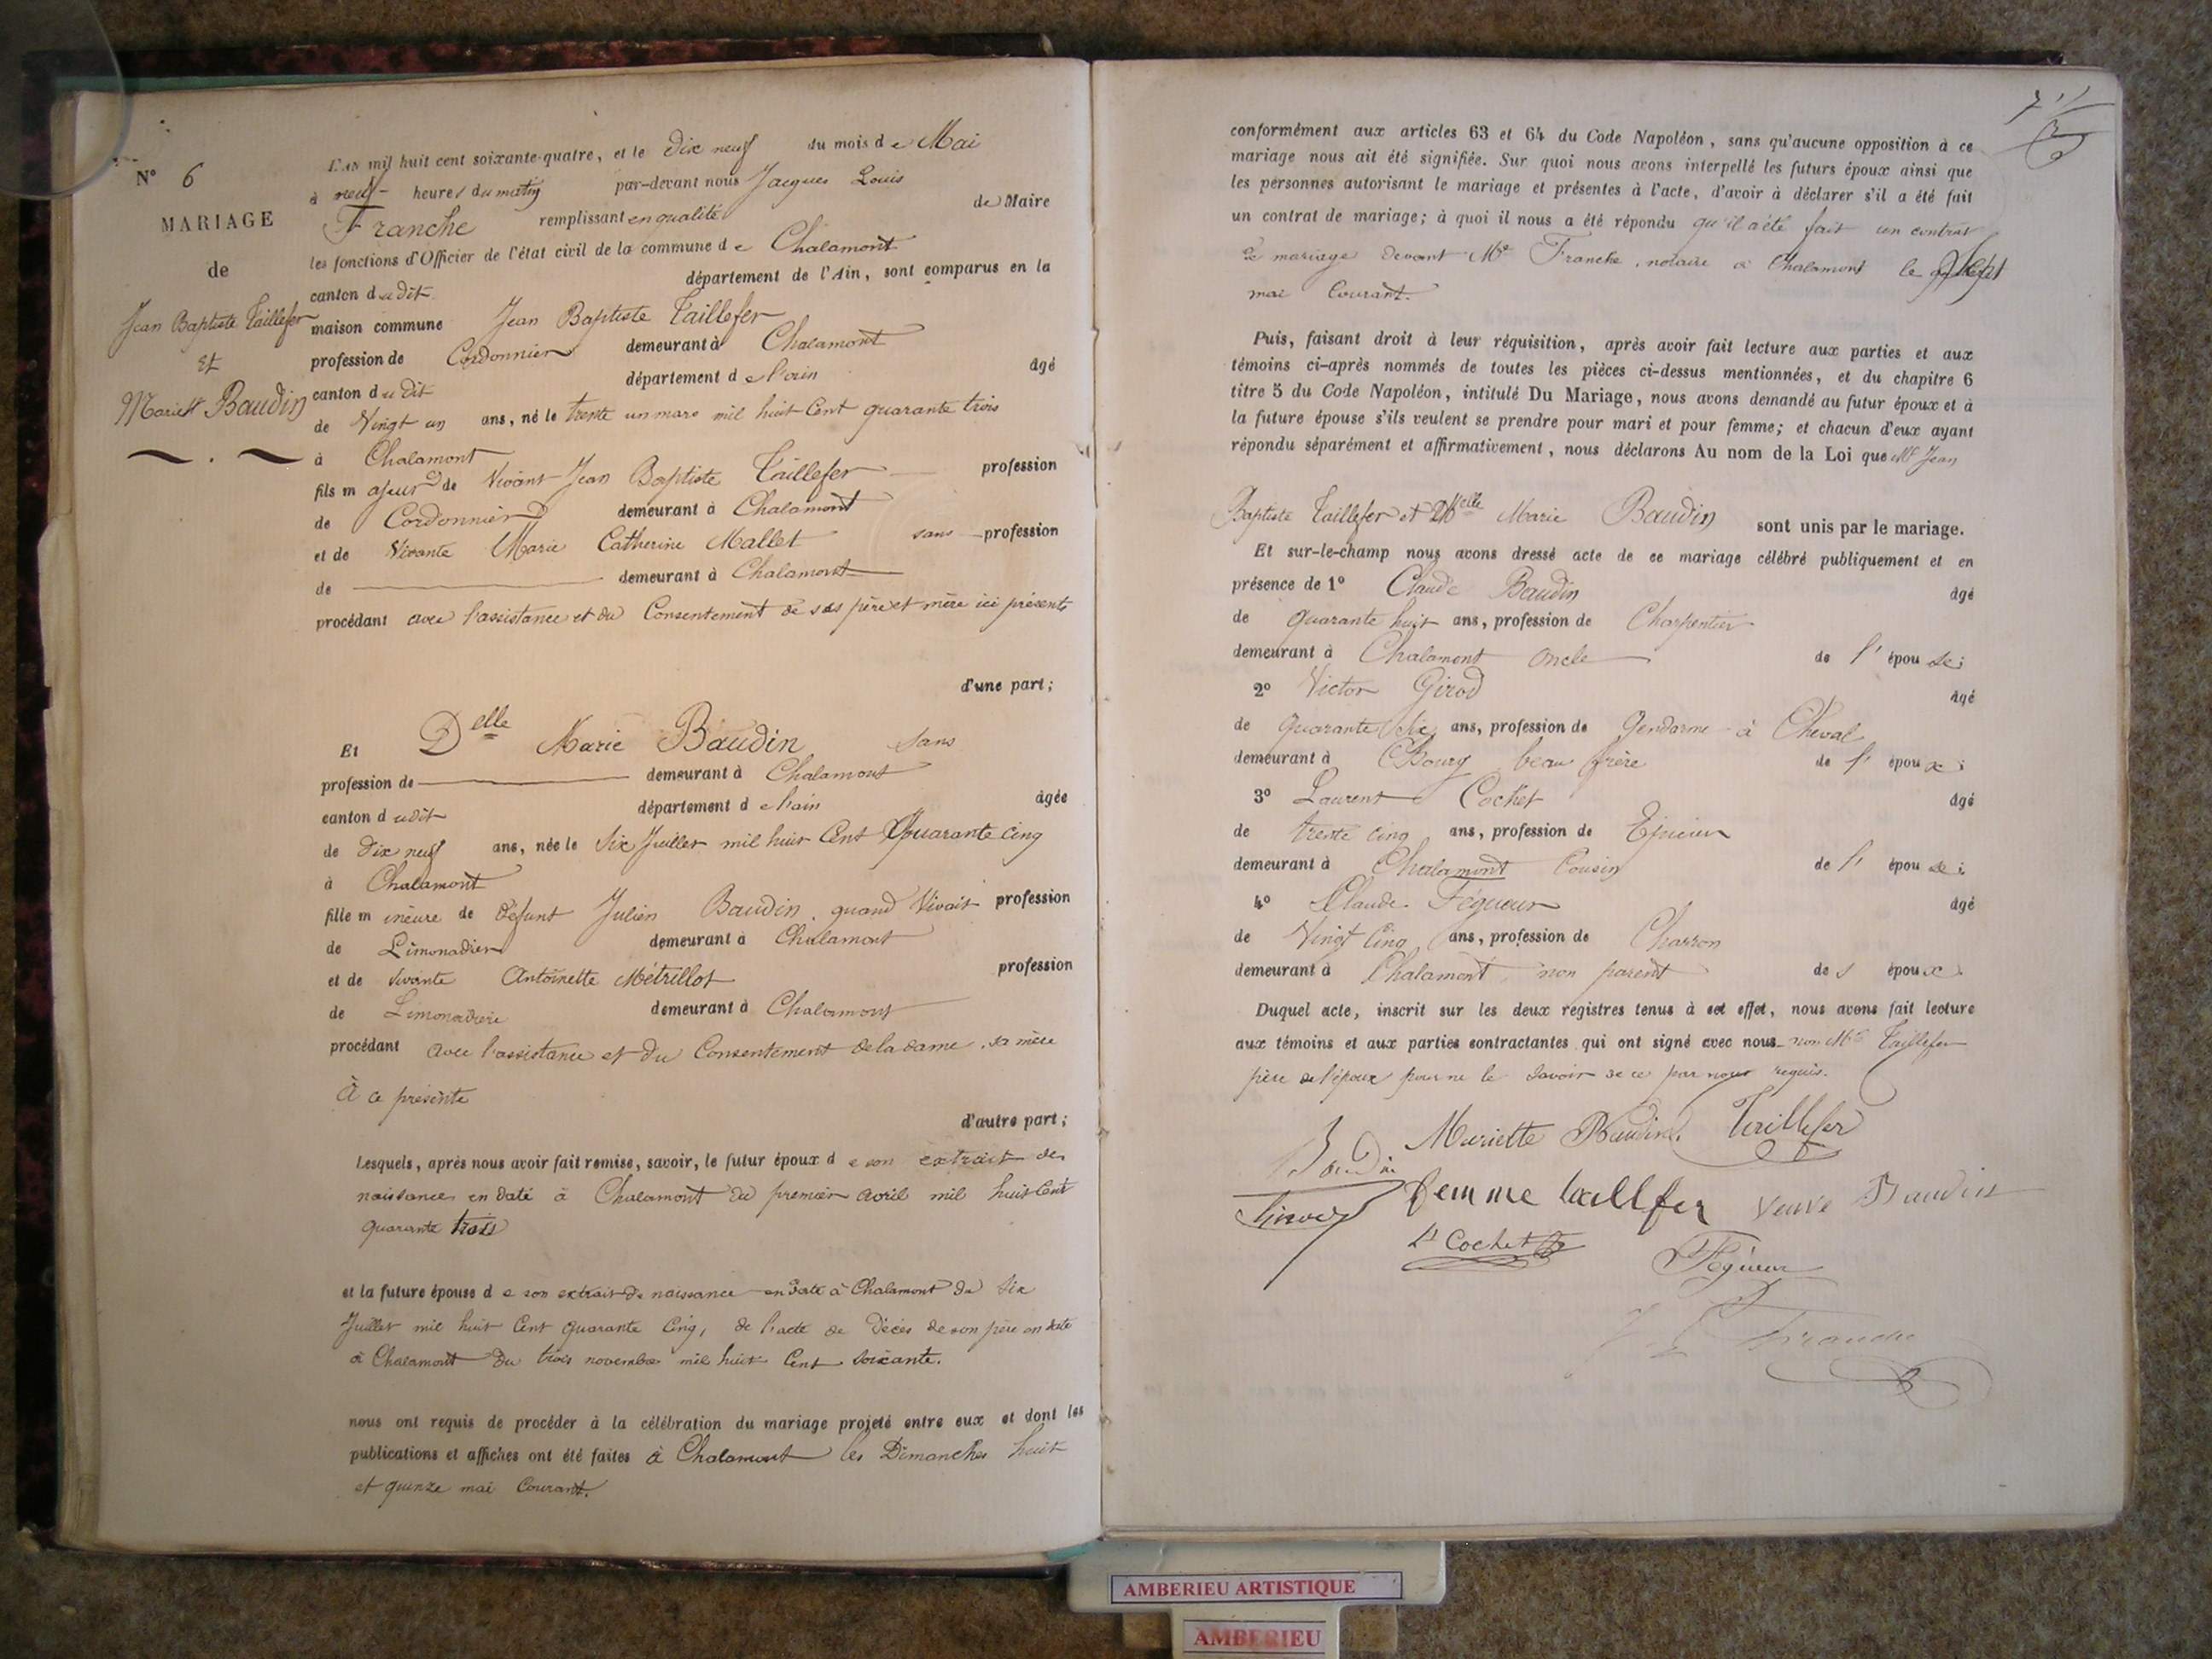 N° 6
MARIAGE
de
Jean Baptiste Taillefer
et
Mariett Baudin
L'AN mil huit cent soixante-quatre, et le Dix neuf du mois de Mai
à neuf heures du matin par-devant nous Jacques Louis
Franche remplissant en qualité de Maire
les fonctions d'Officier de l'état civil de la commune de Chalamont
canton dudit département de l'Ain, sont comparus en la
maison commune Jean Baptiste Taillefer
profession de Cordonnier demeurant à Chalamont
canton dudit département de l'ain âgé
de Vingt un ans, né le trente un mars mil huit Cent quarante trois
à Chalamont
fils majeur de Vivant Jean Baptiste Taillefer profession
de Cordonnier demeurant à Chalamont
et de Vivante Marie Catherine Mallet sans profession
de demeurant à Chalamont
procédant avec l'assistance et du Consentement de ses père et mère ici présents
d'une part;
Et Delle Marie Baudin sans
profession de demeurant à Chalamont
canton dudit département de l'ain âgée
de dix neuf ans, née le Six Juillet mil huit Cent Quarante Cinq
à Chalamont
fille mineure de défunt Julien Baudin, quand Vivait profession
de Limonadier demeurant à Chalamont
et de vivante Antoinette Métrillot profession
de Limonadière demeurant à Chalamont
procédant avec l'assistance et du Consentement de la dame, sa mère
À ce présente
d'autre part;
Lesquels, après nous avoir fait remise, savoir, le futur époux de son extrait de
naissance en date à Chalamont du premier avril mil huit Cent
quarante trois
et la future épouse de son extrait de naissance en date à Chalamont du Six
Juillet mil huit Cent quarante Cinq, de l'acte de décès de son père en date
à Chalamont du trois novembre mil huit Cent soixante.
nous ont requis de procéder à la célébration du mariage projeté entre eux et dont les
publications et affiches ont été faites à Chalamont les Dimanches huit
et quinze mai Courant.
conformément aux articles 63 et 64 du Code Napoléon, sans qu'aucune opposition à ce
mariage nous ait été signifiée. Sur quoi nous avons interpellé les futurs époux ainsi que
les personnes autorisant le mariage et présentes à l'acte, d'avoir à déclarer s'il a été fait
un contrat de mariage; à quoi il nous a été répondu qu'il a été fait un contrat
de mariage devant Me Franche, notaire à Chalamont le Sept
mai Courant.
Puis, faisant droit à leur réquisition, après avoir fait lecture aux parties et aux
témoins ci-après nommés de toutes les pièces ci-dessus mentionnées, et du chapitre 6
titre 5 du Code Napoléon, intitulé Du Mariage, nous avons demandé au futur époux et à
la future épouse s'ils veulent se prendre pour mari et pour femme; et chacun d'eux ayant
répondu séparément et affirmativement, nous déclarons Au nom de la Loi que Mr Jean
Baptiste Taillefer et Melle Marie Baudin sont unis par le mariage.
Et sur-le-champ nous avons dressé acte de ce mariage célébré publiquement et en
présence de 1° Claude Baudin âgé
de quarante huit ans, profession de Charpentier
demeurant à Chalamont oncle de l'épouse;
2° Victor Girod âgé
de quarante six ans, profession de Gendarme à Cheval
demeurant à Bourg beau frère de l'époux;
3° Laurent Cochet âgé
de trente cinq ans, profession de Epicier
demeurant à Chalamont Cousin de l'épouse;
4° Claude Fégueur âgé
de Vingt Cinq ans, profession de Charron
demeurant à Chalamont non parent des époux.
Duquel acte, inscrit sur les deux registres tenus à cet effet, nous avons fait lecture
aux témoins et aux parties contractantes qui ont signé avec nous non Mr Taillefer
père de l'époux pour ne le savoir de ce par nous requis.
Mariette Baudin. Taillefer
Baudin
femme taillfer veuve Baudin
Girod
L Cochet
Fégueur
Franche
AMBERIEU ARTISTIQUE
AMBERIEU